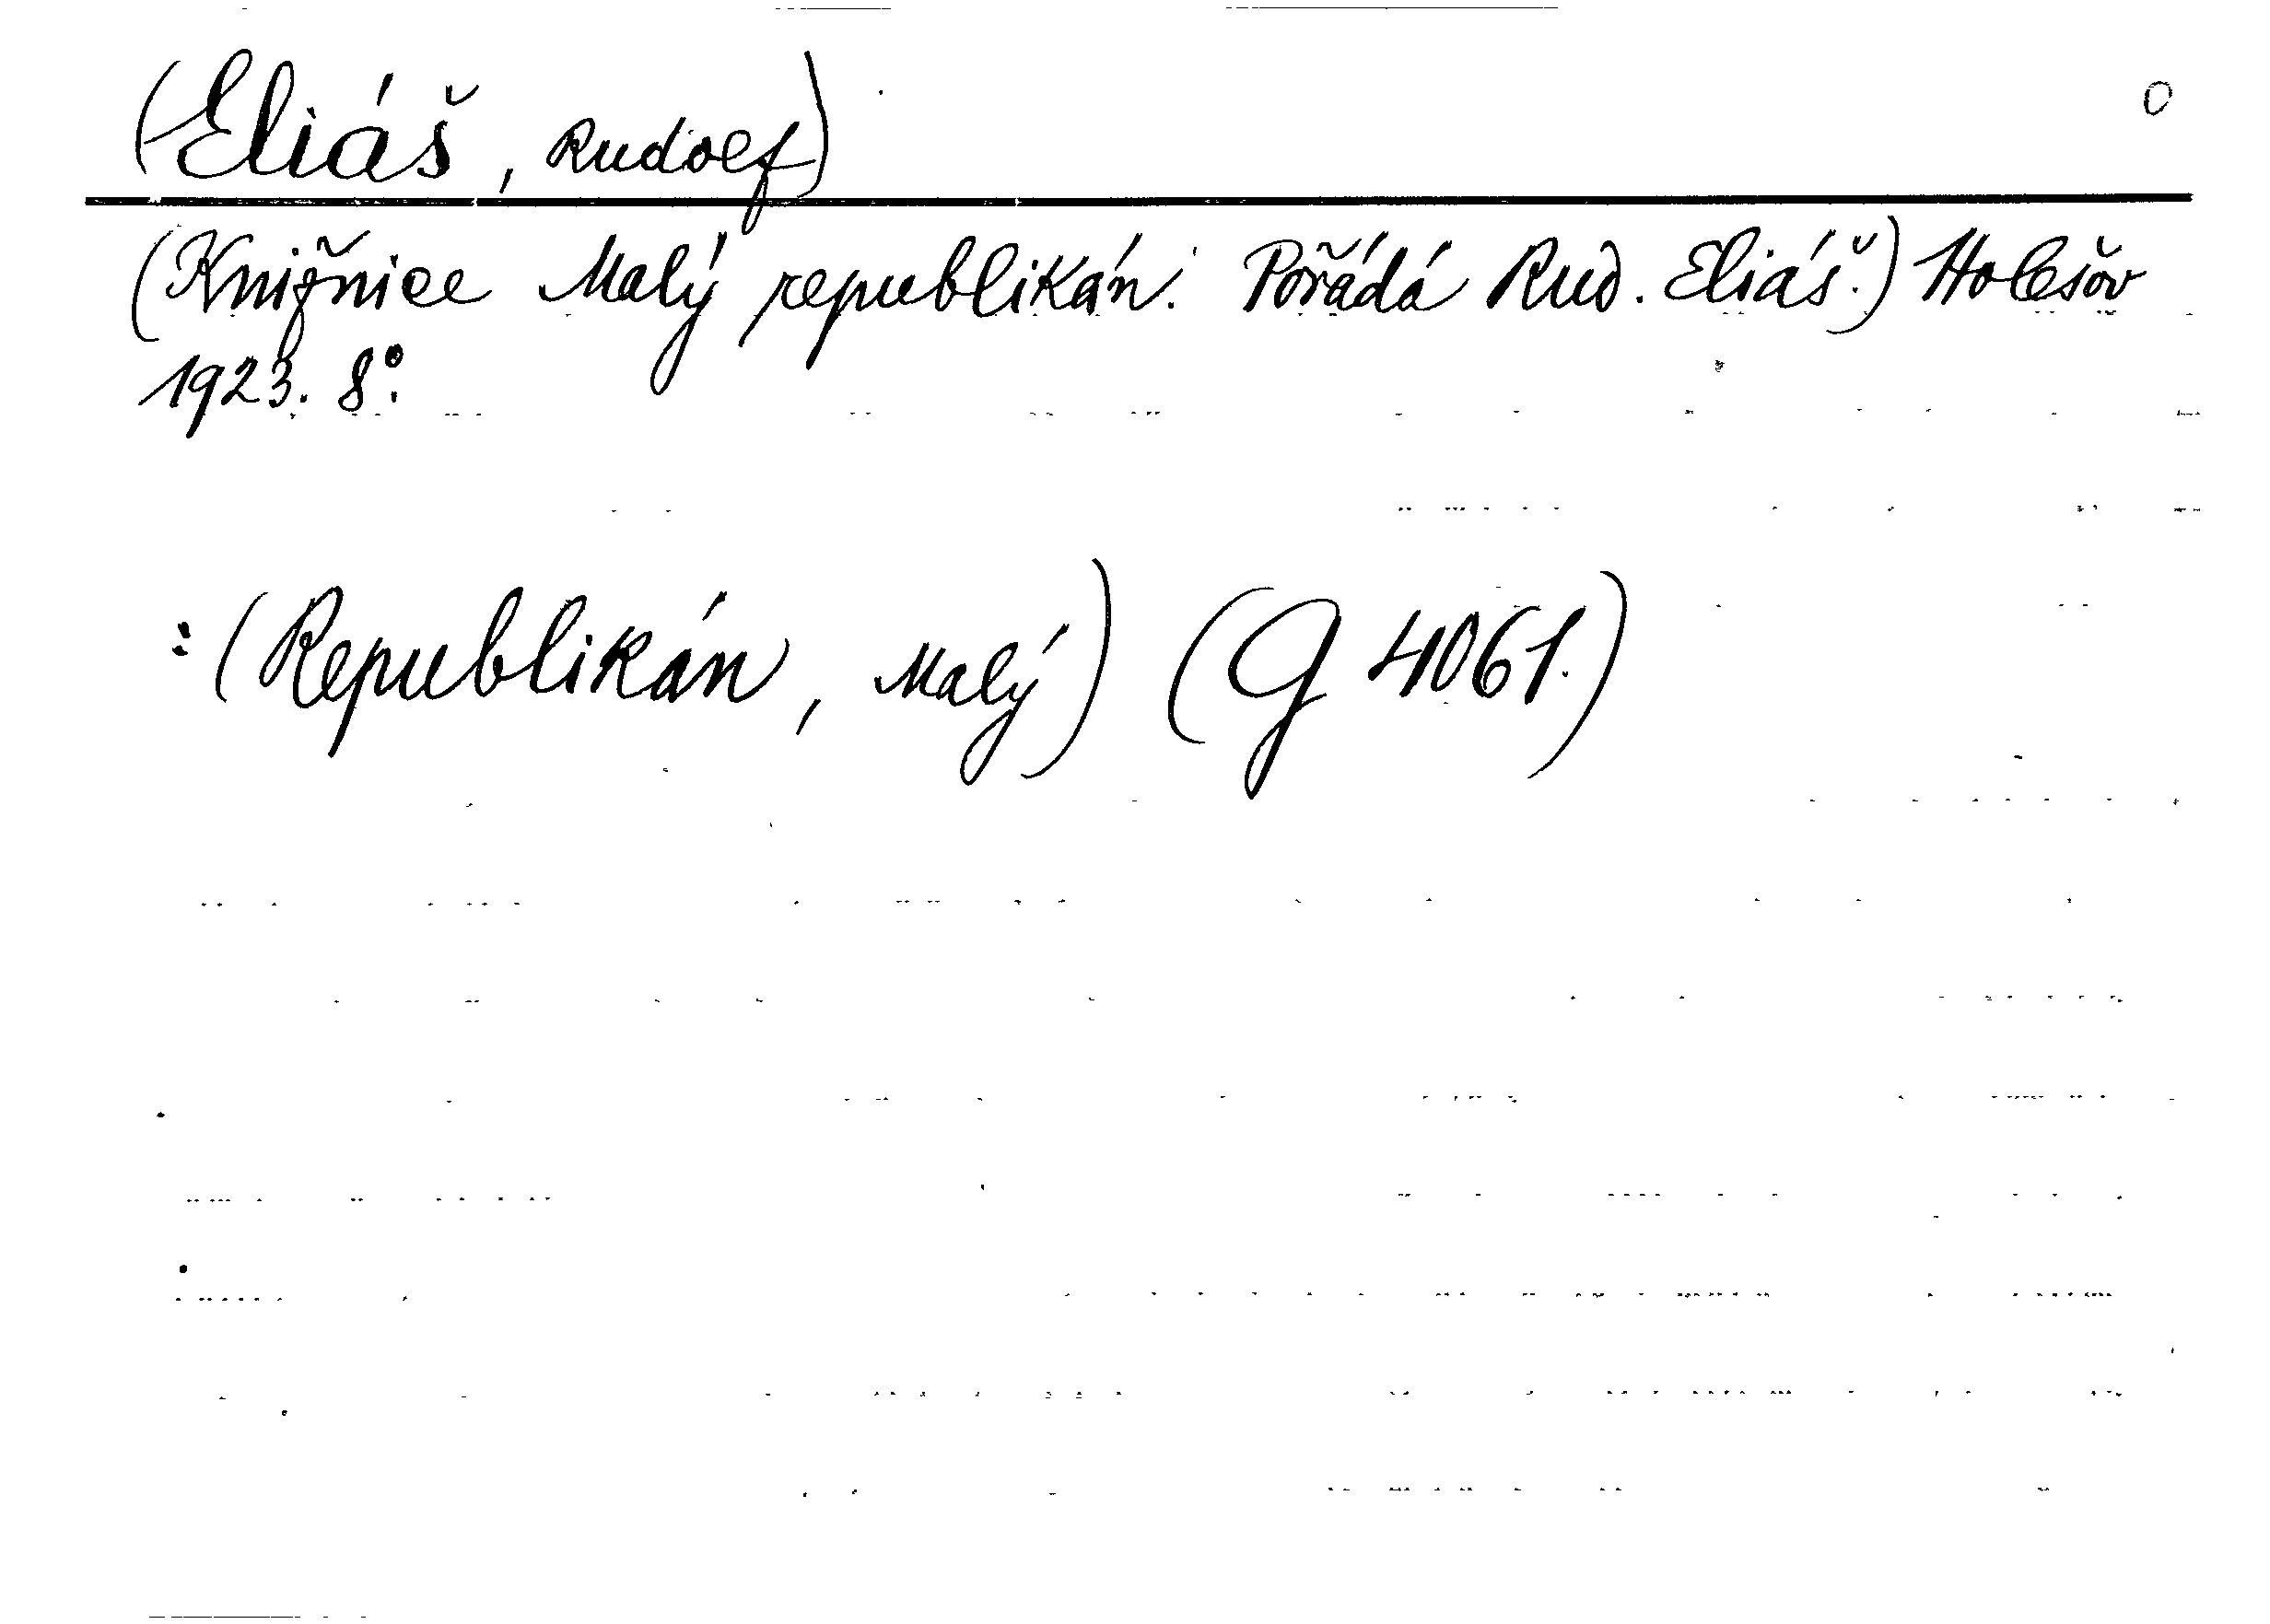 (Eliáš, Rudolf) 0
(Knižnice Malý republikán. Pořádá Rud. Eliáš.) Holešov
1923. 8°.
: (Republikán, Malý) (G 4061.)